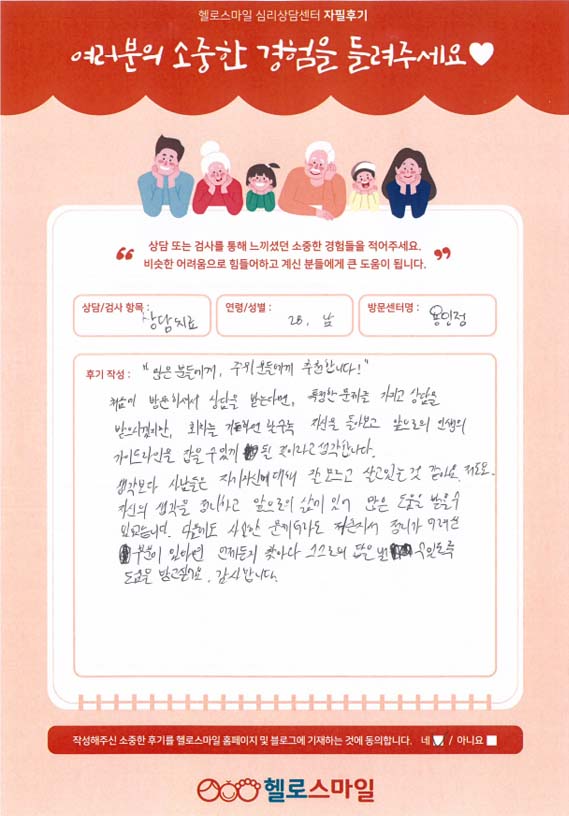 헬로스마일 심리상담센터 자필후기
여러분의 소중한 경험을 들려주세요
상담 또는 검사를 통해 느끼셨던 소중한 경험들을 적어주세요.
비슷한 어려움으로 힘들어하고 계신 분들에게 큰 도움이 됩니다.
상담/검사 항목 : 상담치료
연령/성별 : 28, 남
방문센터명 : 용인점
후기 작성 : "많은 분들에게, 주위 분들에게 추천합니다!"
처음이 방문하셔서 상담을 받는다면, 특정한 문제를 가지고 상담을
받으시겠지만, 회차를 거듭하면 할수록 자신을 돌아보고 앞으로의 인생의
가이드라인을 잡을 수 있게 될 것이라고 생각합니다.
생각보다 사람들은 자기자신에 대해 잘 모르고 살고있는 것 같아요. 저도
자신의 생각을 정리하고 앞으로의 삶에 있어 많은 도움을 받을 수
있었습니다. 다음에도 사소한 문제더라도 정리가 어려운
부분이 있다면 언제든지 찾아와 스스로의 답을 수 있도록
도움을 받고싶어요. 감사합니다.
작성해주신 소중한 후기를 헬로스마일 홈페이지 및 블로그에 기재하는 것에 동의합니다. 네 / 아니요
헬로스마일